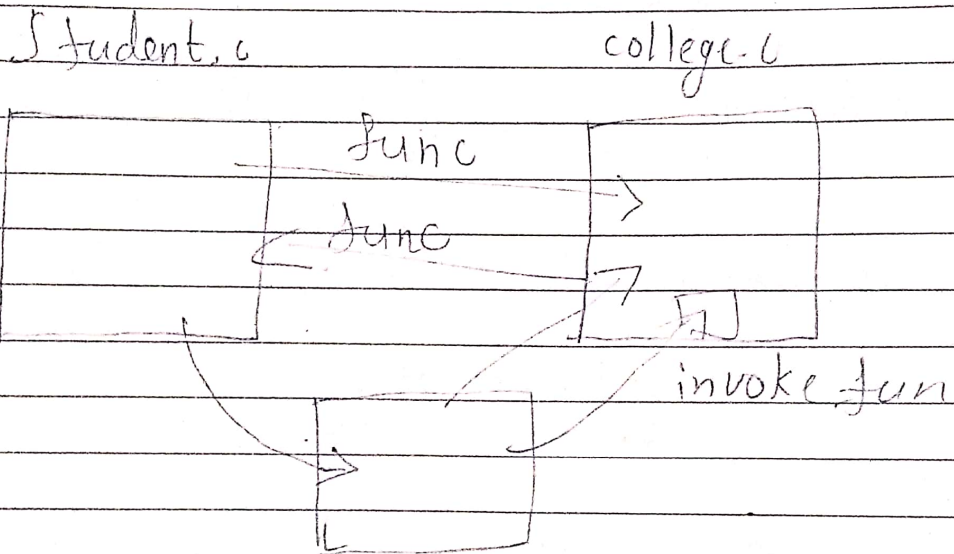 Student.c college.c
func
func
invoke fun